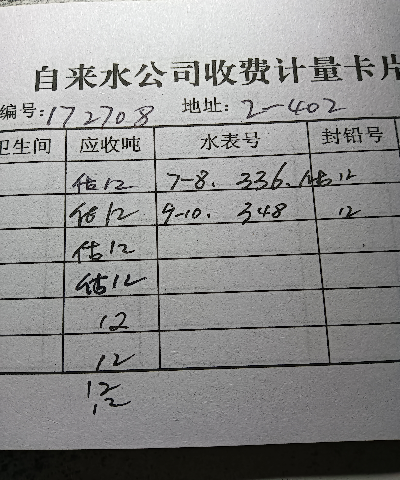 自来水公司收费计量卡片
编号:172708 地址:2-402
卫生间 应收吨 水表号 封铅号
估12 7-8. 336. 估12
估12 9-10. 348 12
估12
估12
12
12
12
12